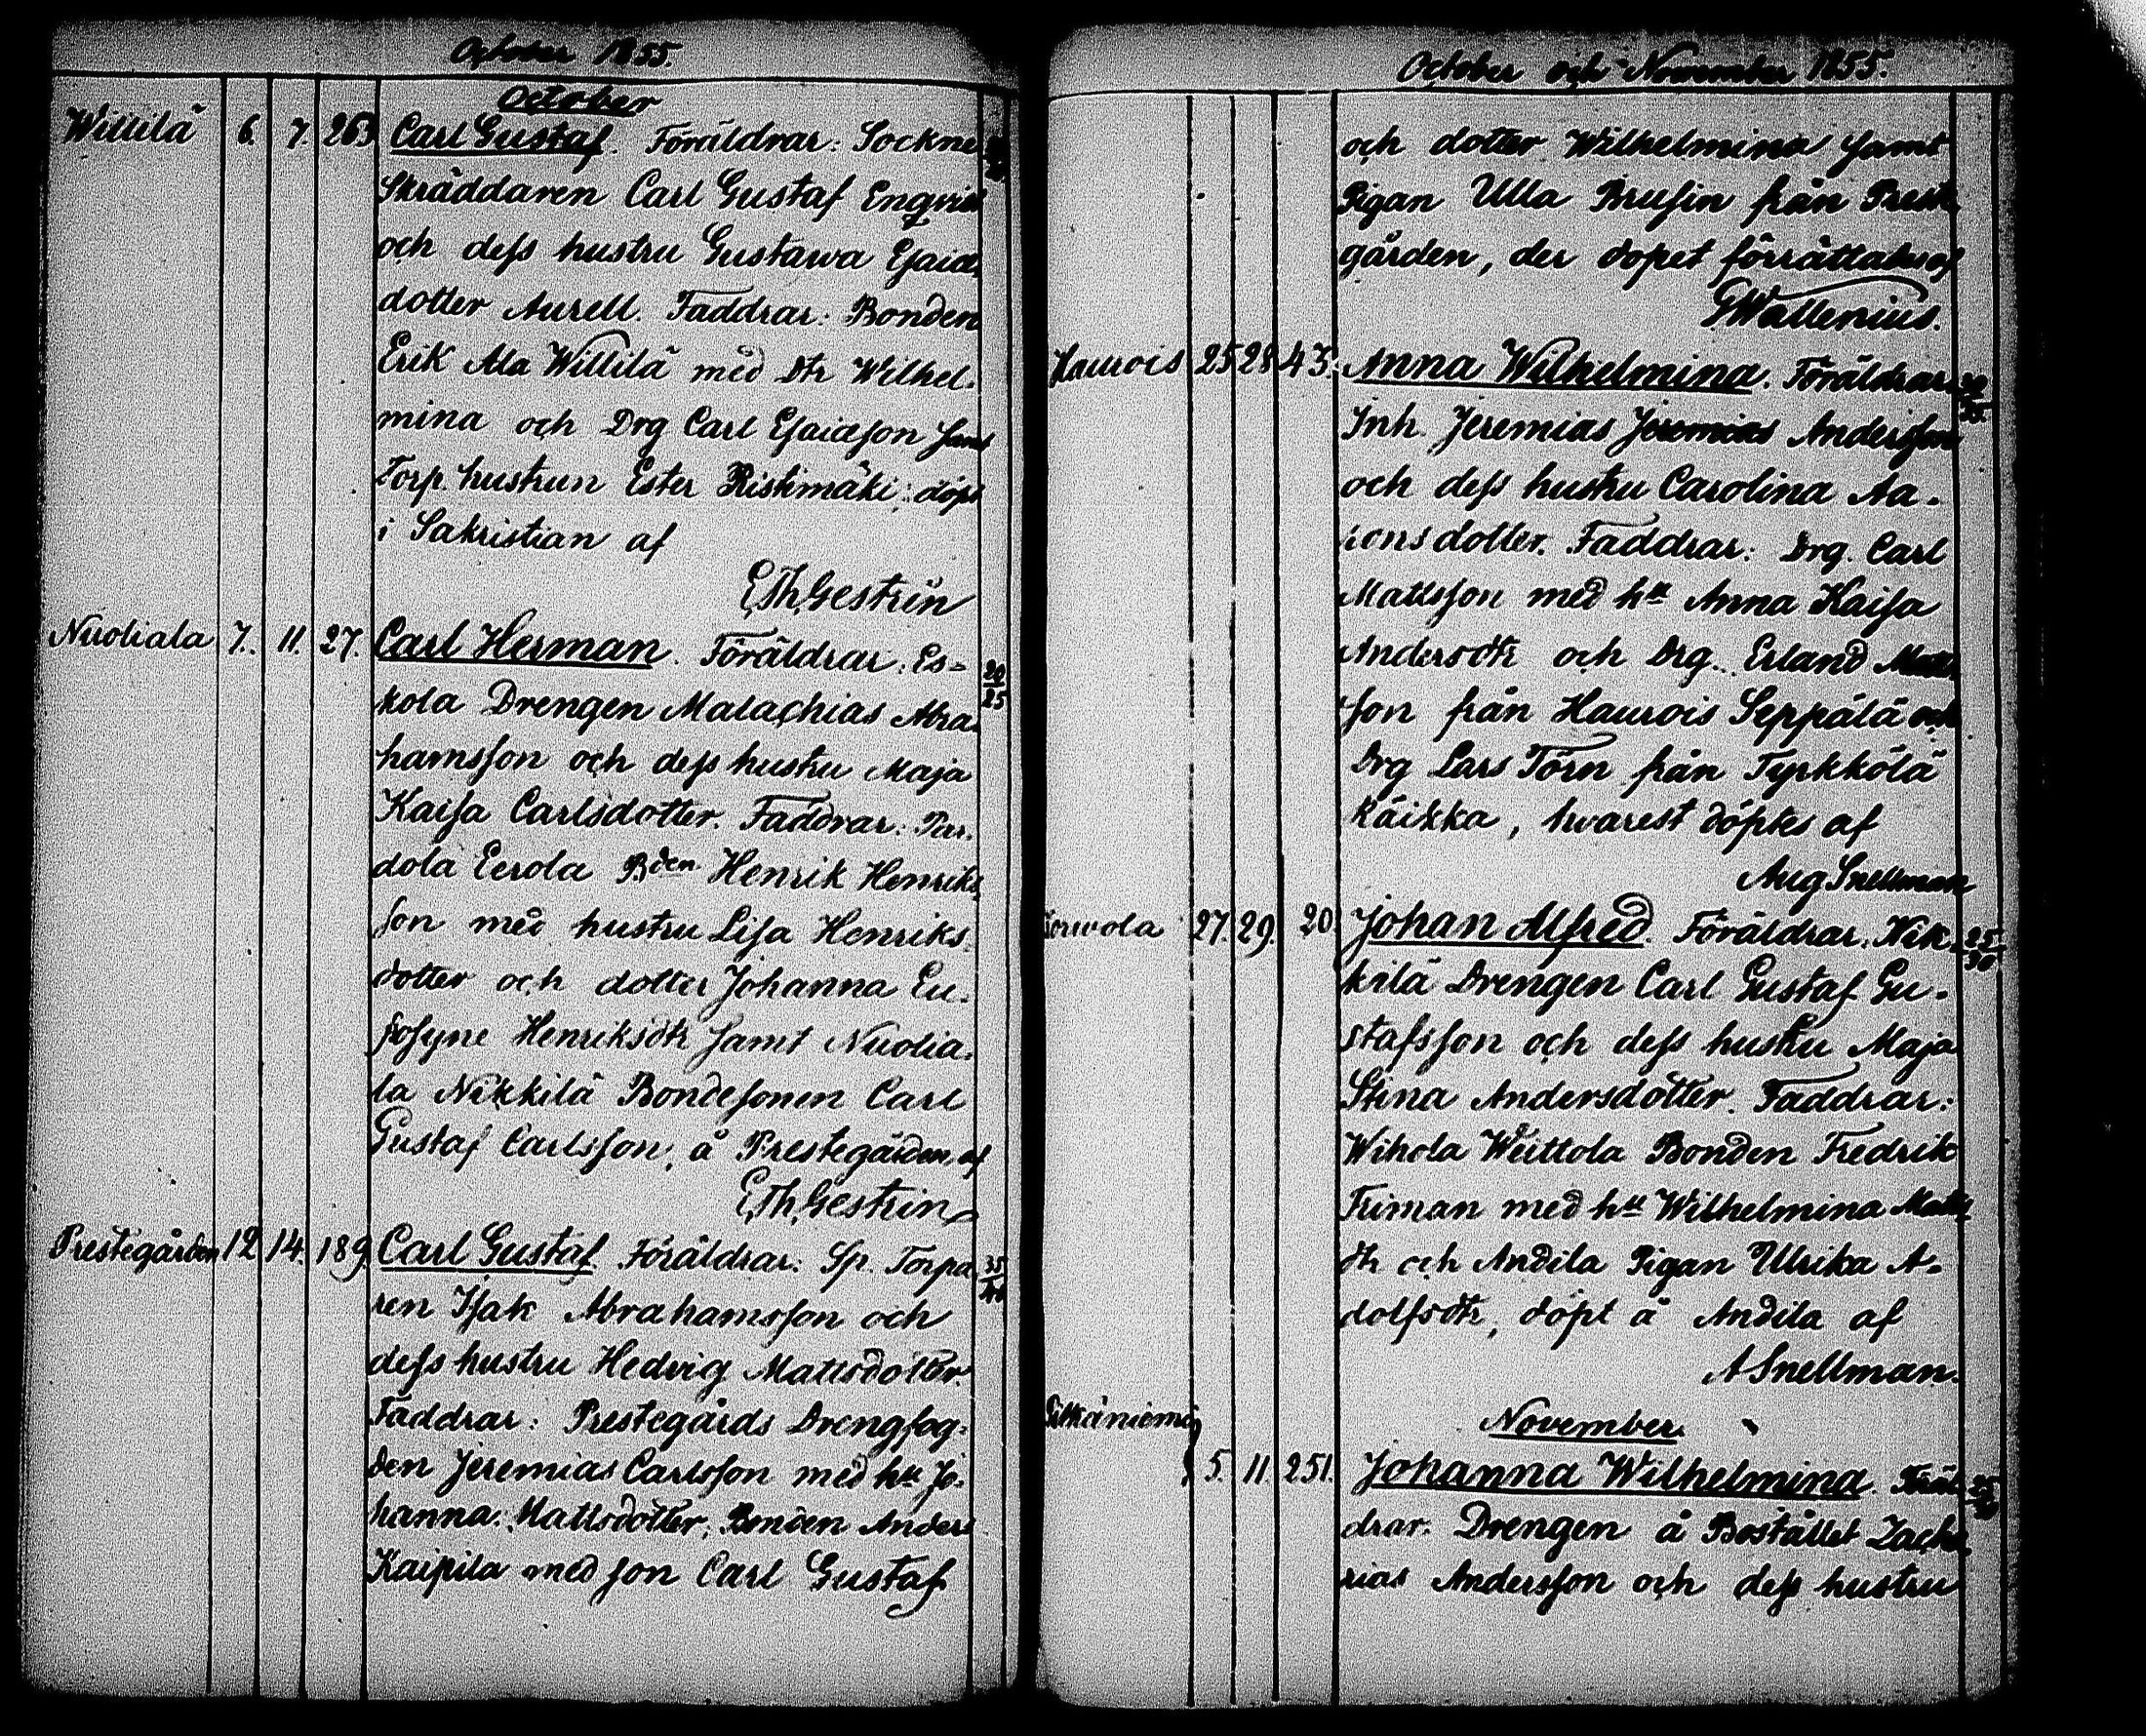 October 1855.
October
Willilä 6. 7. 263 Carl Gustaf. Föräldrar: Sockne
Skräddaren Carl Gustaf Enqvist
och dess hustru Gustawa Esaiæ
dotter Aurell. Faddrar: Bonden
Erik Ala Willilä med Dtr Wilhel-
mina och Drg Carl Esaiæson samt
Torp. hustrun Ester Ristimäki; döpt
i Sakristian af
E,Th,Gestrin
Nuoliala 7. 11. 27. Carl Herman. Föräldrar: Es= 22/25
kola Drengen Malachias Abra-
hamsson och dess hustru Maja
Kaisa Carlsdotter. Faddrar: Pur-
dola Eerola Bden Henrik Henriks
son med hustru Lisa Henriks
dotter och dotter Johanna Eu-
frosyne Henriksdtr samt Nuolia-
la Nikkilä Bondesonen Carl
Gustaf Carlsson, å Prestegården, af
E,Th,Gestrin
Prestegården 12 14. 189. Carl Gustaf. Föräldrar: Sp. Torpa 35
ren Isak Abrahamsson och
dess hustru Hedvig Mattsdotter.
Faddrar: Prestegårds Drengfog-
den Jeremias Carlsson med hu Jo-
hanna Mattsdotter, Bonden Anders
Kaipila med son Carl Gustaf
October och November 1855.
och dotter Wilhelmina samt
Pigan Ulla Brusin från Prest
gården, der dopet förrättades af
GWallenius.
Haurois 25 28 43. Anna Wilhelmina. Föräldrar
Inh. Jeremias Jeremias Andersson
och dess hustru Carolina Aa-
ronsdotter. Faddrar: Drg. Carl
Mattsson med hu Anna Kaisa
Andersdtr och Drg. Erland Matts
son från Haurois Seppälä och
Drg Lars Törn från Tyrkkölä
Käikkä, hvarest döptes af
Aug Snellman
27. 29. 20 Johan Alfred. Föräldrar: Nik- 25/30
kilä Drengen Carl Gustaf Gu-
stafsson och dess hustru Maja
Stina Andersdotter. Faddrar:
Wihola Weittola Bonden Fredrik
Friman med hu Wilhelmina Matts
dtr och Andila Pigan Ulrika A-
dolfsdtr, döpt å Andila af
A Snellman.
Pitkäniemi November
5. 11. 251. Johanna Wilhelmina. Föräl
drar: Drengen å Bostället Zacha
rias Andersson och dess hustru